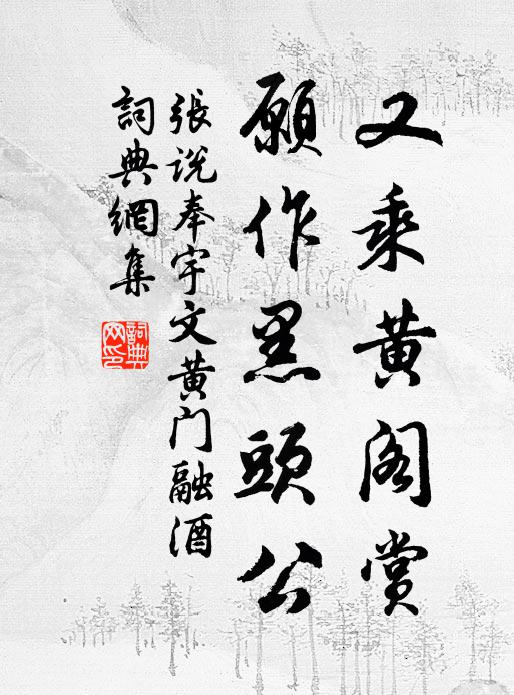 又乘黄阁赏
願作黑頭公
張说奉宇文黄门融酒
詞典網集
詞典
网印